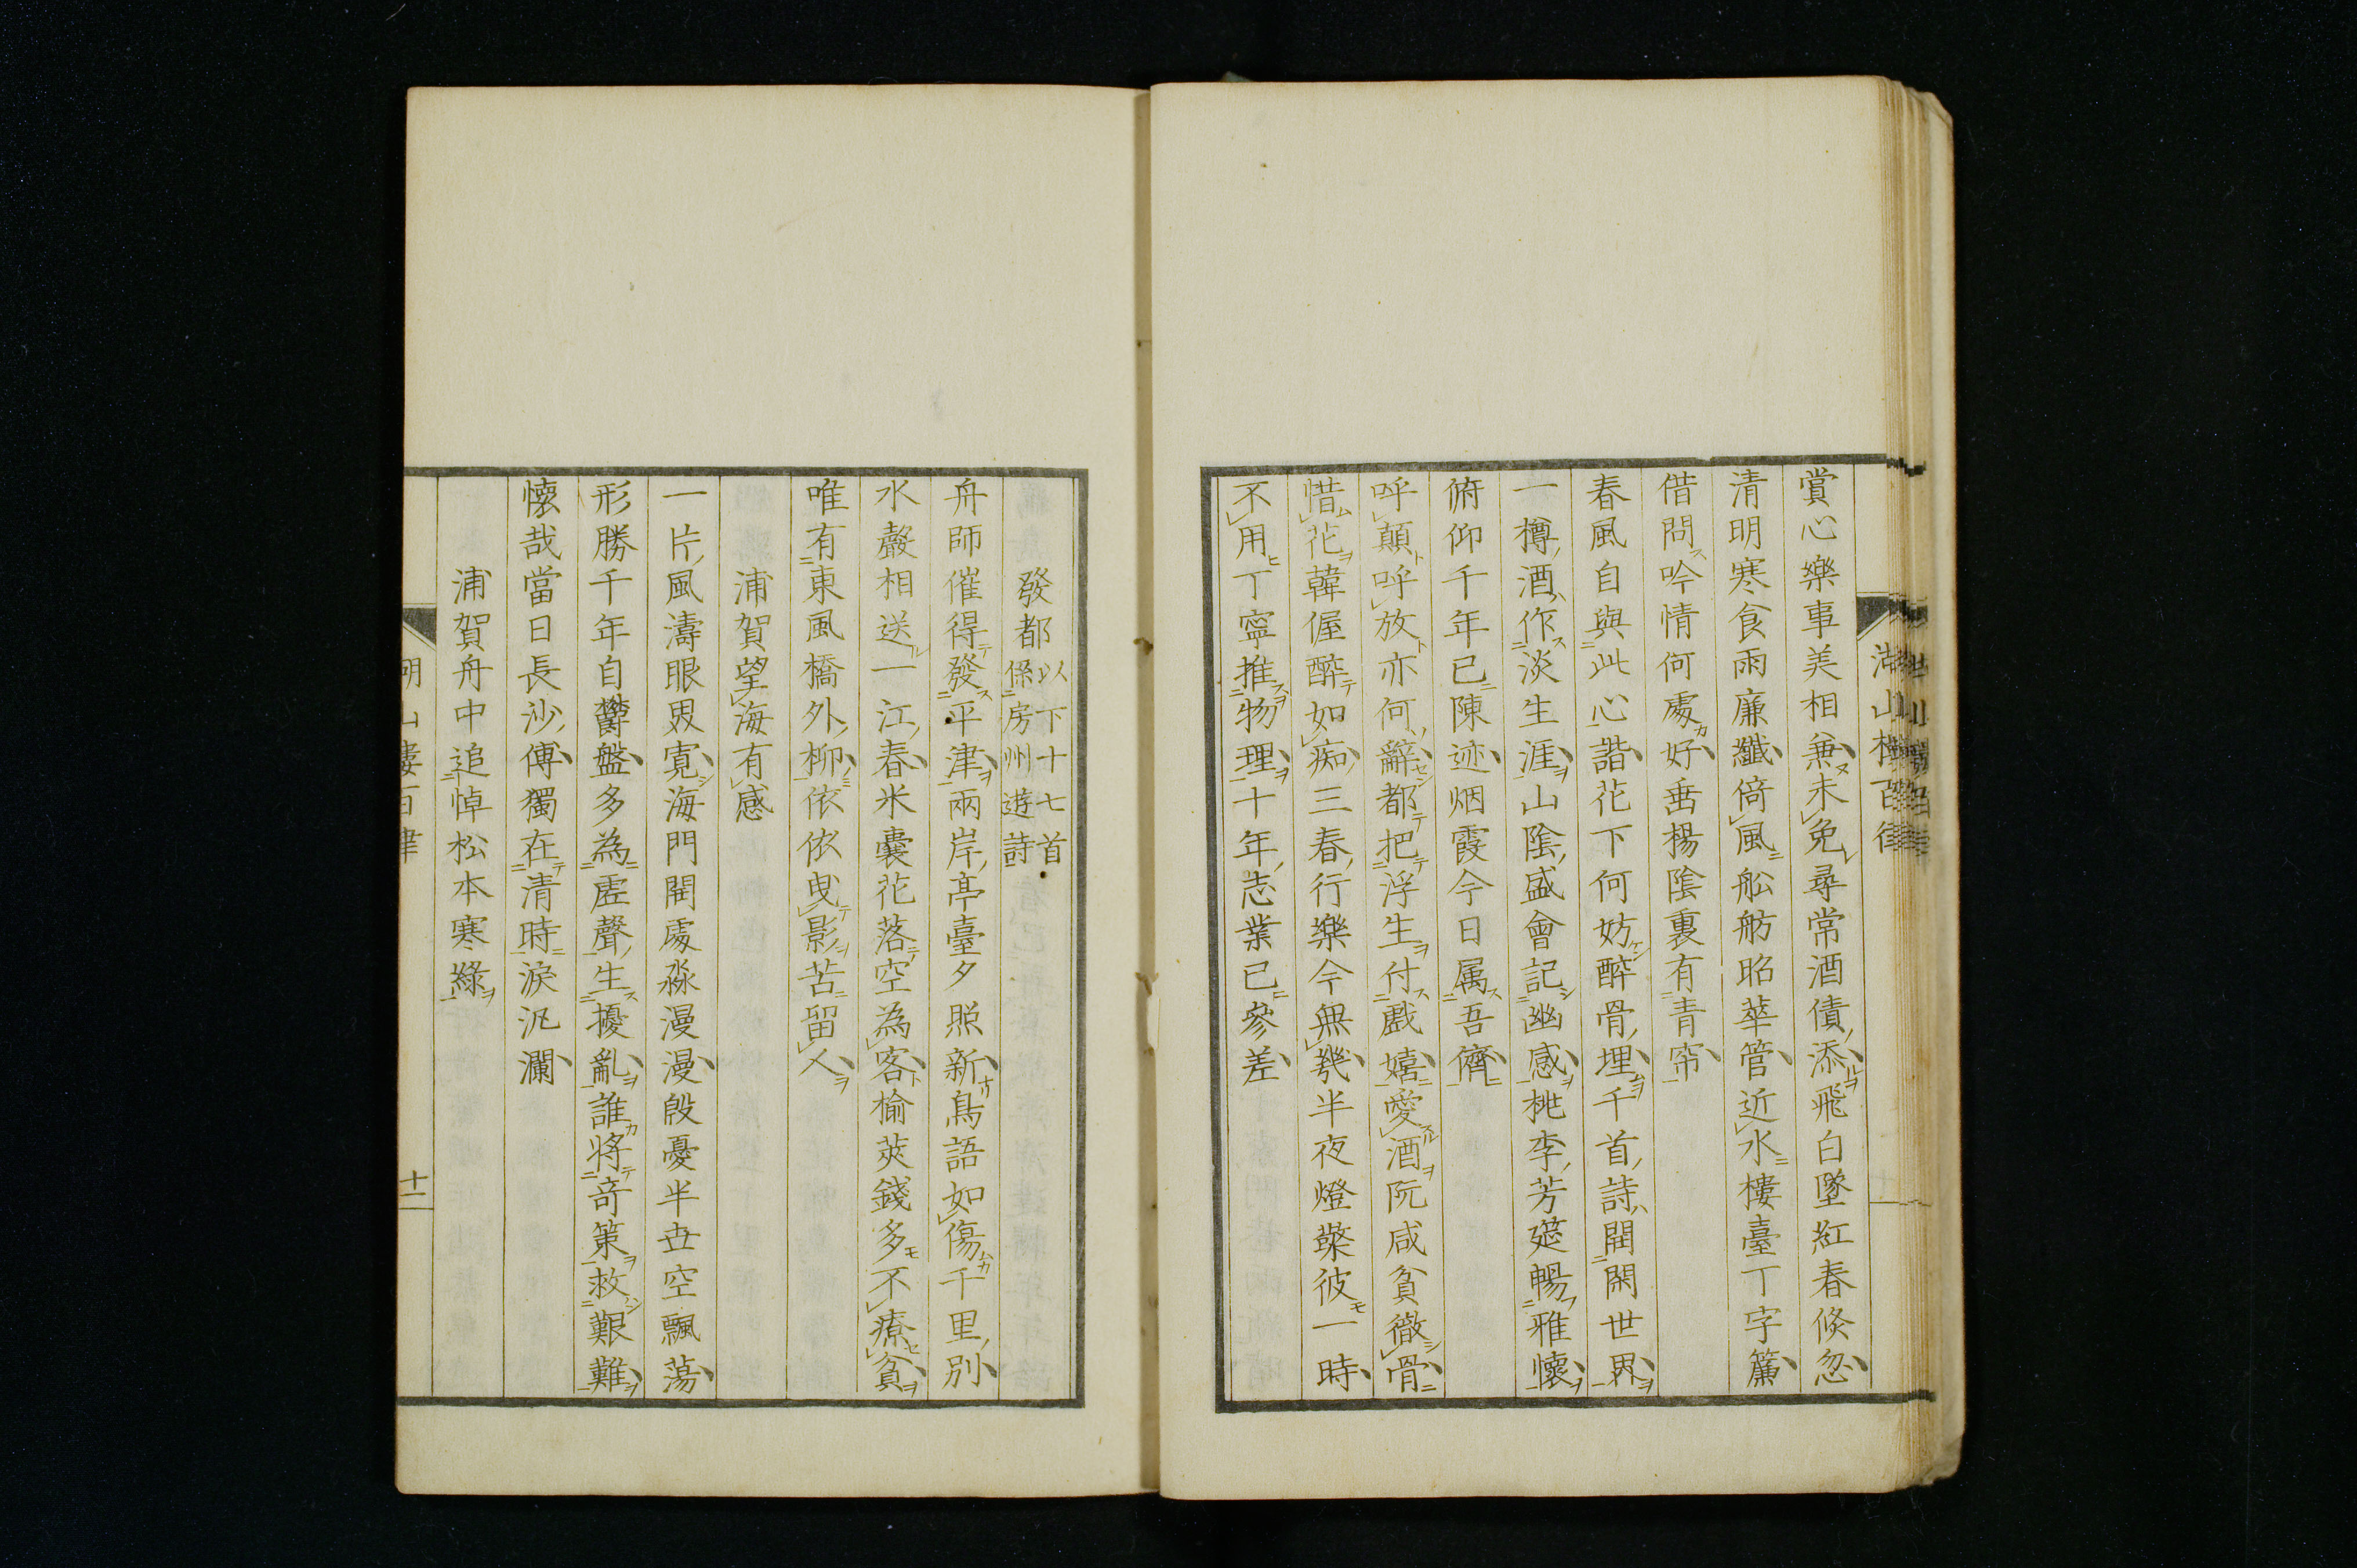 湖山樓百律
賞心樂事美相兼未免尋常酒債添飛白墜紅春倏忽
清明寒食雨廉纖倚風船舫昭華管近水樓臺丁字簾
借問吟情何處好垂楊陰裏有青帘
春風自與此心諧花下何妨醉骨埋千首詩開閑世界
一樽酒作淡生涯山陰盛會記幽感桃李芳筵暢雅懷
俯仰千年已陳迹烟霞今日属吾儕
呼顛呼放亦何辭都把浮生付戲嬉愛酒阮咸貧徹骨
惜花韓偓醉如痴三春行樂今無幾半夜燈檠彼一時
不用丁寧推物理十年志業已參差
發都以下十七首係房州遊詩
舟師催得發平津兩岸亭臺夕照新鳥語如傷千里別
水聲相送一江春米囊花落空為客榆莢錢多不療貧
唯有東風橋外柳依依曳影苦留人
浦賀望海有感
一片風濤眼界寬海門開處淼漫漫殷憂半世空飄蕩
形勝千年自鬱盤多為虛聲生擾亂誰將奇策救艱難
懷哉當日長沙傅獨在清時淚汎瀾
浦賀舟中追悼松本寒綠
湖山樓百律
十一